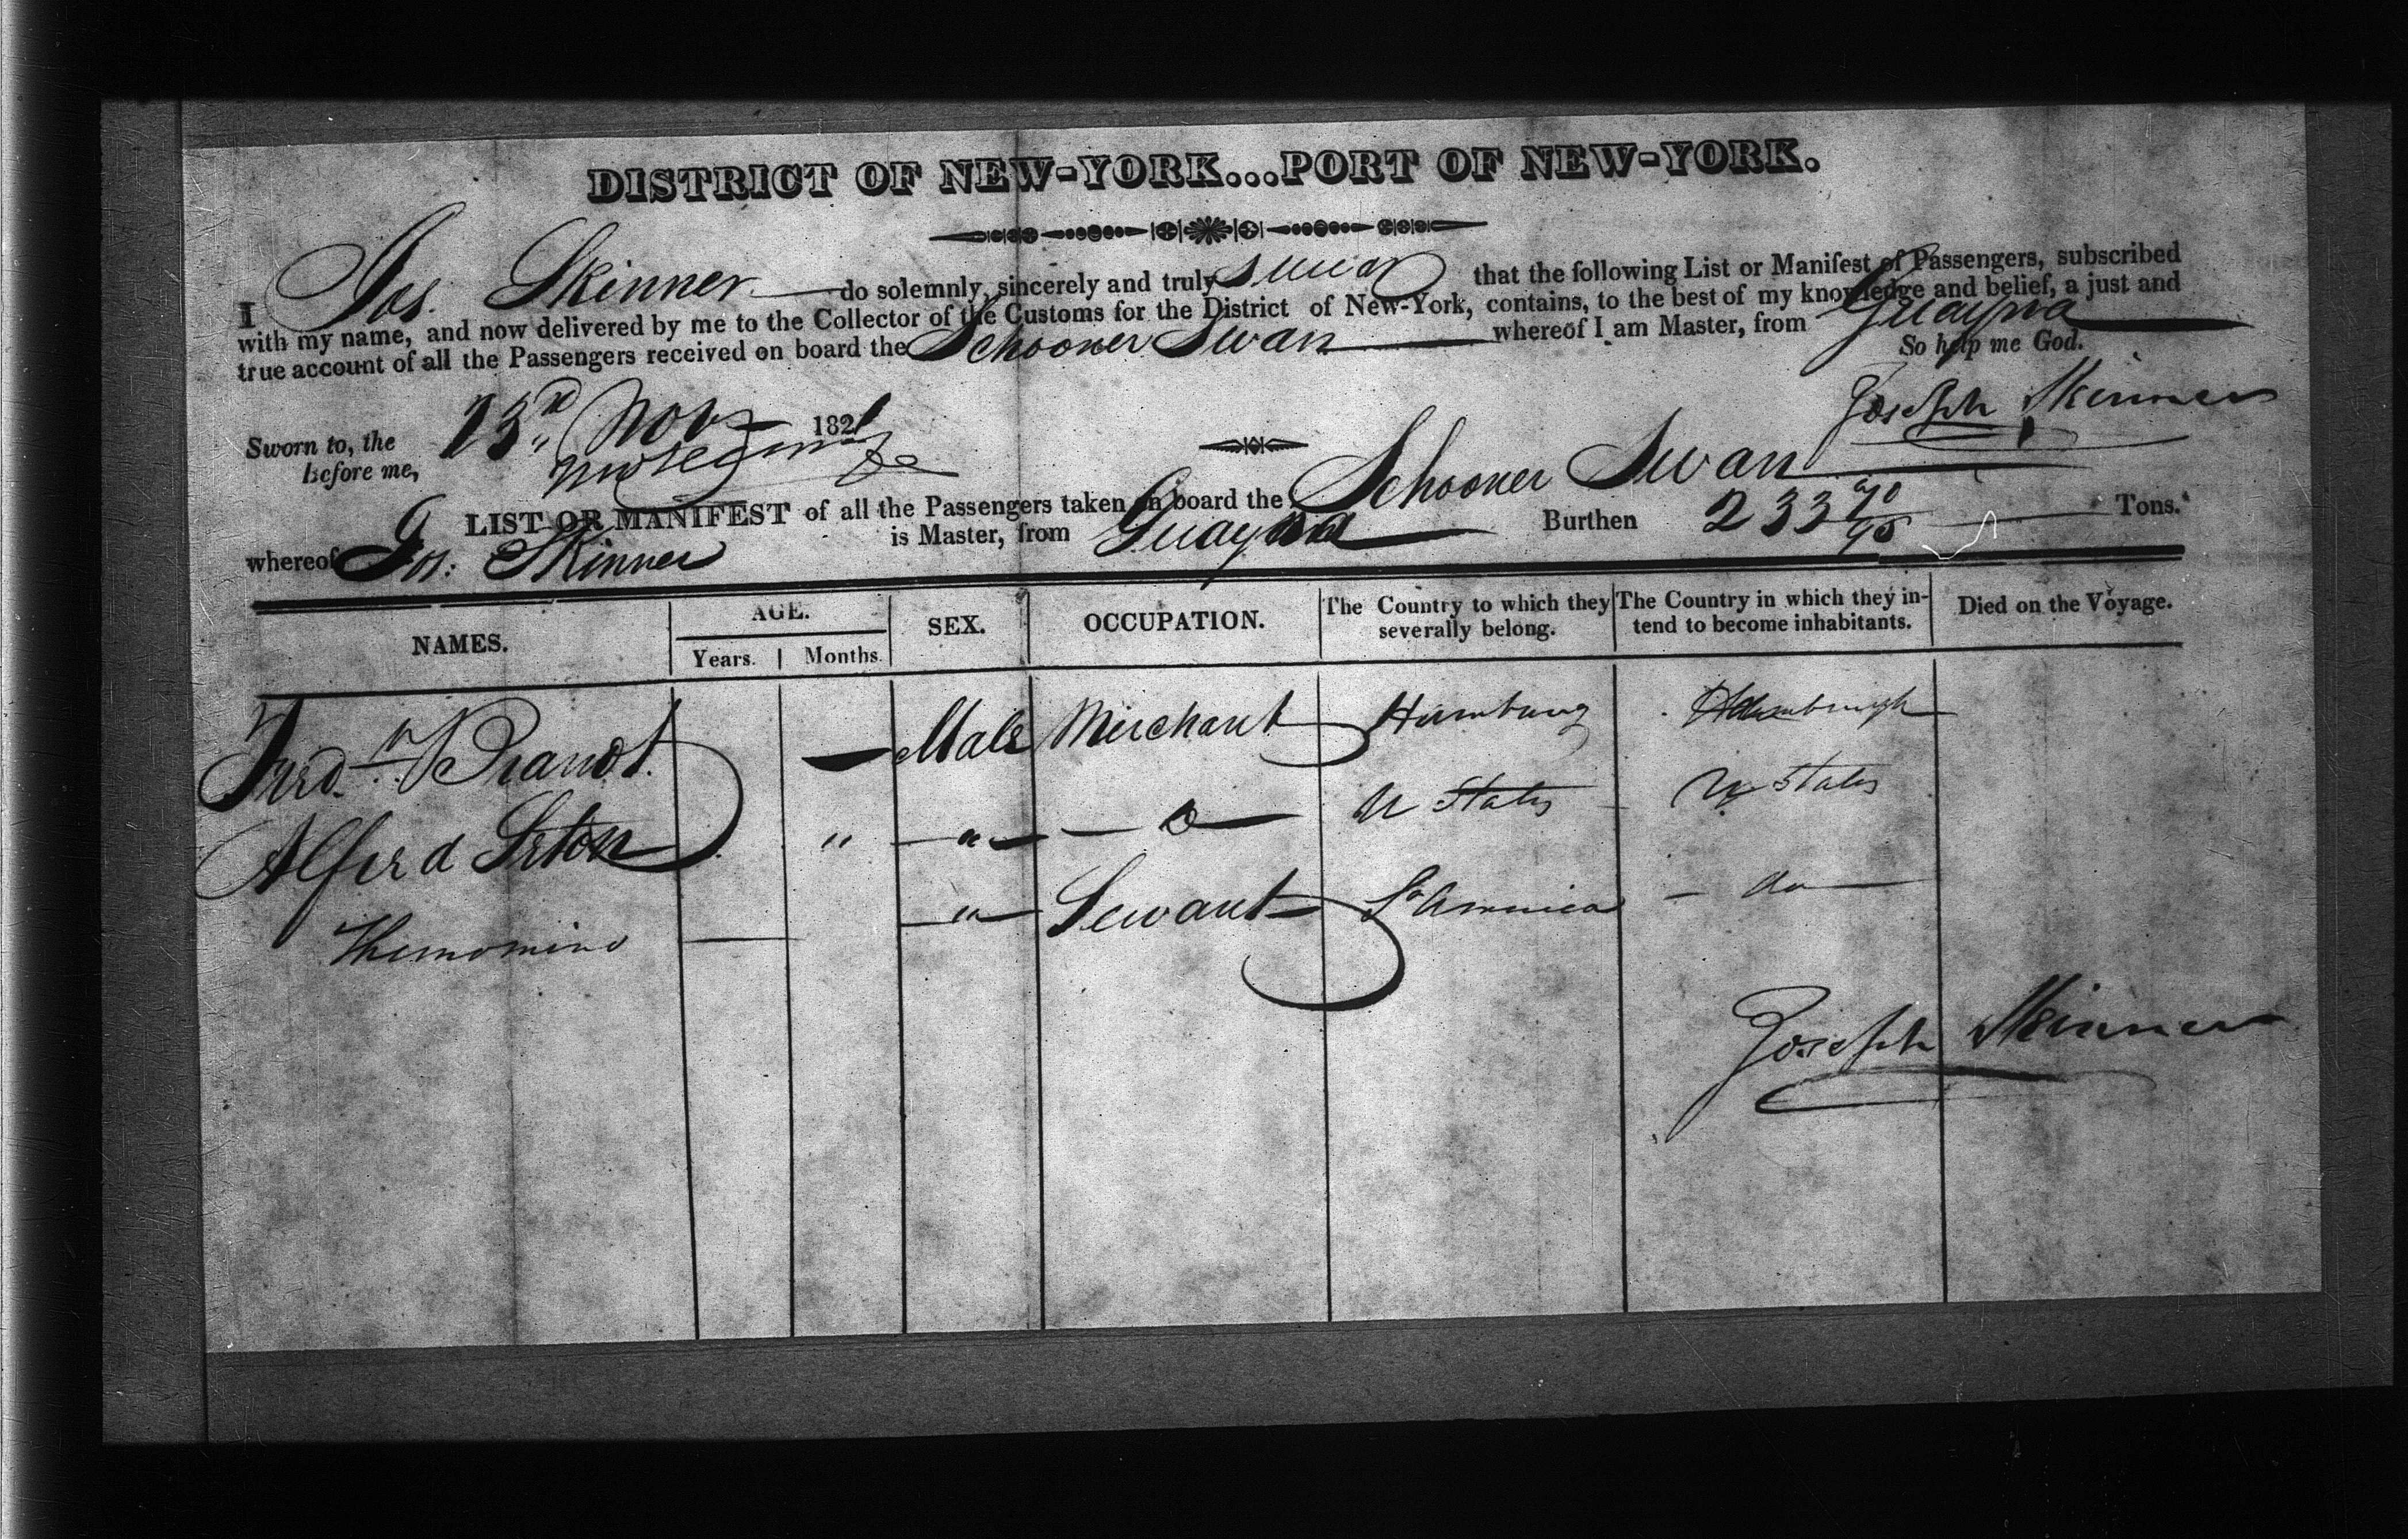 DISTRICT OF NEW-YORK...PORT OF NEW-YORK.
I Jos. Skinner do solemnly, sincerely and truly swear that the following List or Manifest of Passengers, subscribed
with my name, and now delivered by me to the Collector of the Customs for the District of New-York, contains, to the best of my knowledge and belief, a just and
true account of all the Passengers received on board the Schooner Swan whereof I am Master, from Guayra
So help me God.
Sworn to, the 13 Nov 1821 Joseph Skinner
Before me,
LIST OR MANIFEST of all the Passengers taken on board the Schooner Swan
whereof Jos: Skinner is Master, from Guayra Burthen 233 90/95 Tons.
NAMES. AGE. SEX. OCCUPATION. The Country to which they severally belong. The Country in which they intend to become inhabitants. Died on the Voyage.
Years. Months.
Ferd. Brandt. Male Merchant Hamburg
Alfred Seton " " U States U States
" Servant So America do
Joseph Skinner